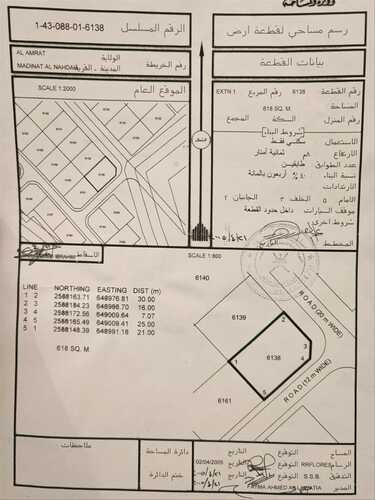 1-43-088-01-6138
الرقم المسلسل
رسم مساحي لقطعة ارض
AL AMRAT
الولاية
MADINAT AL NAHDAH
المدينة - القرية
رقم الخريطة
بيانات القطعة
SCALE 1:2000
الموقع العام
رقم القطعة
6138
رقم المربع
EXTN 1
المساحة
618 SQ. M.
رقم المنزل
السكة
المجمع
شروط البناء
الاستعمال
سكني فقط
الارتفاع
ثمانية أمتار
عدد الطوابق
طابقين
نسبة البناء
٤٠٪ أربعون بالمائة
الارتدادات
الامام ٥
الخلف ٣
الجانبان ٢
موقف السيارات
داخل حدود القطعة
شروط اخرى
المخطط
التاريخ
الشمال
الاسقاط
SCALE 1:500
LINE NORTHING EASTING DIST (m)
1 2 2588163.71 648976.81 30.00
2 3 2588184.23 648998.70 16.00
3 4 2588172.56 649009.64 7.07
4 5 2588165.49 649009.41 25.00
5 1 2588148.39 648991.18 21.00
618 SQ. M.
6140
6139
6138
6161
1
2
3
4
5
ROAD (20 m WIDE)
ROAD (12 m WIDE)
ملاحظات
دائرة المساحة
ختم الدائرة
التاريخ
02/04/2005
التوقيع
RRFLORES
المساح
الرسام
التاريخ
التوقيع
S.S.B.
التاريخ
التوقيع
المدير